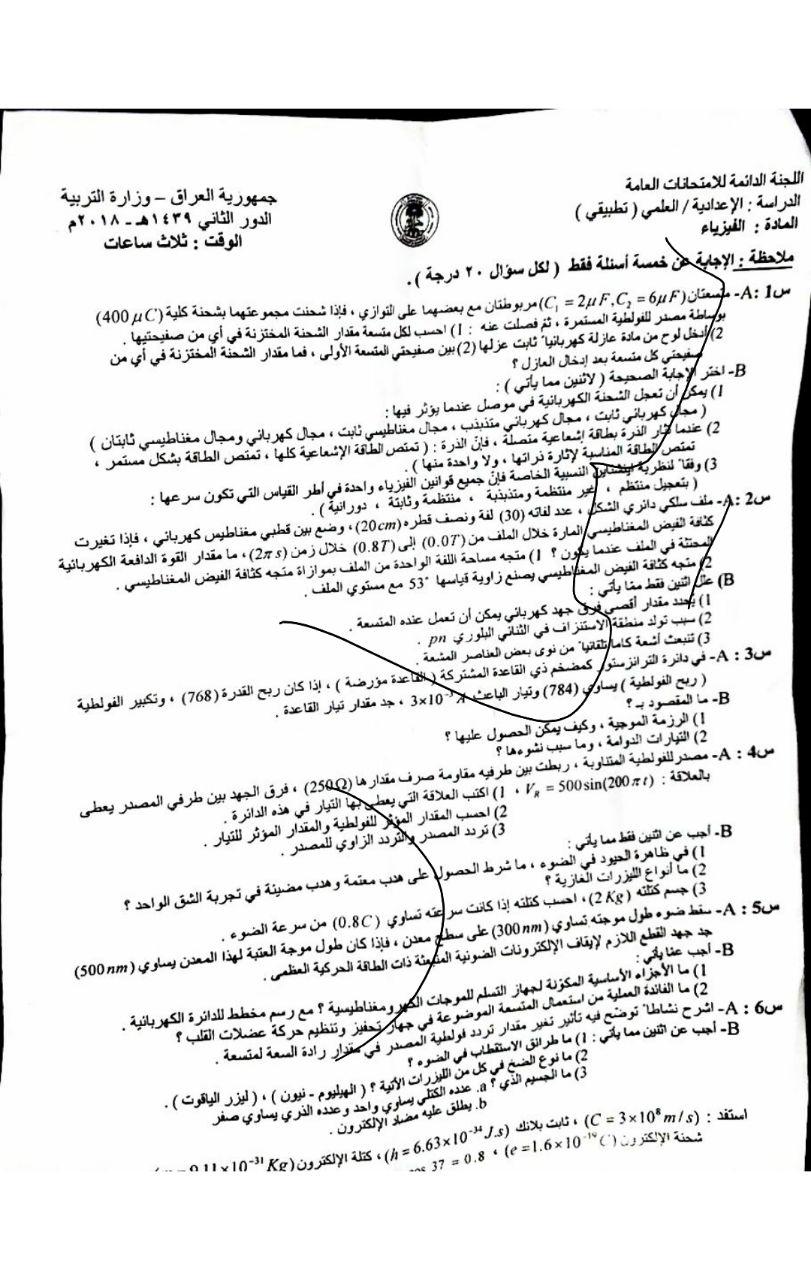 اللجنة الدائمة للامتحانات العامة
الدراسة : الإعدادية / العلمي ( تطبيقي )
المادة : الفيزياء
جمهورية العراق – وزارة التربية
الدور الثاني ١٤٣٩هـ - ٢٠١٨م
الوقت : ثلاث ساعات
ملاحظة : الإجابة عن خمسة أسئلة فقط ( لكل سؤال ٢٠ درجة ) .
س1: A- متسعتان (C₁ = 2μF , C₂ = 6μF) مربوطتان مع بعضهما على التوازي ، فإذا شحنت مجموعتهما بشحنة كلية (400 μC)
بوساطة مصدر للفولطية المستمرة ، ثم فصلت عنه : 1) احسب لكل متسعة مقدار الشحنة المختزنة في أي من صفيحتيها .
2) أدخل لوح من مادة عازلة كهربائياً ثابت عزلها (2) بين صفيحتي المتسعة الأولى ، فما مقدار الشحنة المختزنة في أي من
صفيحتي كل متسعة بعد إدخال العازل ؟
B- اختر الإجابة الصحيحة ( لاثنين مما يأتي ) :
1) يمكن أن تعجل الشحنة الكهربائية في موصل عندما يؤثر فيها :
( مجال كهربائي ثابت ، مجال كهربائي متذبذب ، مجال مغناطيسي ثابت ، مجال كهربائي ومجال مغناطيسي ثابتان )
2) عندما تثار الذرة بطاقة إشعاعية متصلة ، فإن الذرة : ( تمتص الطاقة الإشعاعية كلها ، تمتص الطاقة بشكل مستمر ،
تمتص الطاقة المناسبة لإثارة ذراتها ، ولا واحدة منها ) .
3) وفقاً لنظرية آينشتاين النسبية الخاصة فإن جميع قوانين الفيزياء واحدة في أطر القياس التي تكون سرعها :
( بتعجيل منتظم ، غير منتظمة ومتذبذبة ، منتظمة وثابتة ، دورانية ) .
س2: A- ملف سلكي دائري الشكل ، عدد لفاته (30) لفة ونصف قطره (20cm) ، وضع بين قطبي مغناطيس كهربائي ، فإذا تغيرت
كثافة الفيض المغناطيسي المارة خلال الملف من (0.0T) إلى (0.8T) خلال زمن (2π s) ، ما مقدار القوة الدافعة الكهربائية
المحتثة في الملف عندما يكون ؟ 1) متجه مساحة اللفة الواحدة من الملف بموازاة متجه كثافة الفيض المغناطيسي .
2) متجه كثافة الفيض المغناطيسي يصنع زاوية قياسها 53° مع مستوي الملف .
B) علل اثنين فقط مما يأتي :
1) يحدد مقدار أقصى فرق جهد كهربائي يمكن أن تعمل عنده المتسعة .
2) سبب تولد منطقة الاستنزاف في الثنائي البلوري pn .
3) تنبعث أشعة كاما تلقائياً من نوى بعض العناصر المشعة .
س3 : A- في دائرة الترانزستور كمضخم ذي القاعدة المشتركة ( القاعدة مؤرضة ) ، إذا كان ربح القدرة (768) ، وتكبير الفولطية
( ربح الفولطية ) يساوي (784) وتيار الباعث 3×10⁻³ A ، جد مقدار تيار القاعدة .
B- ما المقصود بـ ؟
1) الرزمة الموجية ، وكيف يمكن الحصول عليها ؟
2) التيارات الدوامة ، وما سبب نشوءها ؟
س4 : A- مصدر للفولطية المتناوبة ، ربطت بين طرفيه مقاومة صرف مقدارها (250Ω) ، فرق الجهد بين طرفي المصدر يعطى
بالعلاقة : V_R = 500 sin(200 π t) ، 1) اكتب العلاقة التي يعطى بها التيار في هذه الدائرة .
2) احسب المقدار المؤثر للفولطية والمقدار المؤثر للتيار .
3) تردد المصدر والتردد الزاوي للمصدر .
B- أجب عن اثنين فقط مما يأتي :
1) في ظاهرة الحيود في الضوء ، ما شرط الحصول على هدب معتمة وهدب مضيئة في تجربة الشق الواحد ؟
2) ما أنواع الليزرات الغازية ؟
3) جسم كتلته (2 Kg) ، احسب كتلته إذا كانت سرعته تساوي (0.8C) من سرعة الضوء .
س5 : A- سقط ضوء طول موجته تساوي (300 nm) على سطح معدن ، فإذا كان طول موجة العتبة لهذا المعدن يساوي (500 nm)
جد جهد القطع اللازم لإيقاف الإلكترونات الضوئية المنبعثة ذات الطاقة الحركية العظمى .
B- أجب عما يأتي :
1) ما الأجزاء الأساسية المكونة لجهاز التسلم للموجات الكهرومغناطيسية ؟ مع رسم مخطط للدائرة الكهربائية .
2) ما الفائدة العملية من استعمال المتسعة الموضوعة في جهاز تحفيز وتنظيم حركة عضلات القلب ؟
س6 : A- اشرح نشاطاً توضح فيه تأثير تغير مقدار تردد فولطية المصدر في مقدار رادة السعة لمتسعة .
B- أجب عن اثنين مما يأتي : 1) ما طرائق الاستقطاب في الضوء ؟
2) ما نوع الضخ في كل من الليزرات الآتية ؟ ( الهيليوم - نيون ) ، ( ليزر الياقوت ) .
3) ما الجسيم الذي ؟ a. عدده الكتلي يساوي واحد وعدده الذري يساوي صفر
b. يطلق عليه مضاد الإلكترون .
استفد : (C = 3×10⁸ m/s) ، ثابت بلانك (h = 6.63×10⁻³⁴ J.s) ، كتلة الإلكترون (9.11×10⁻³¹ Kg
شحنة الإلكترون (e = 1.6×10⁻¹⁹ C) ، cos 37 = 0.8